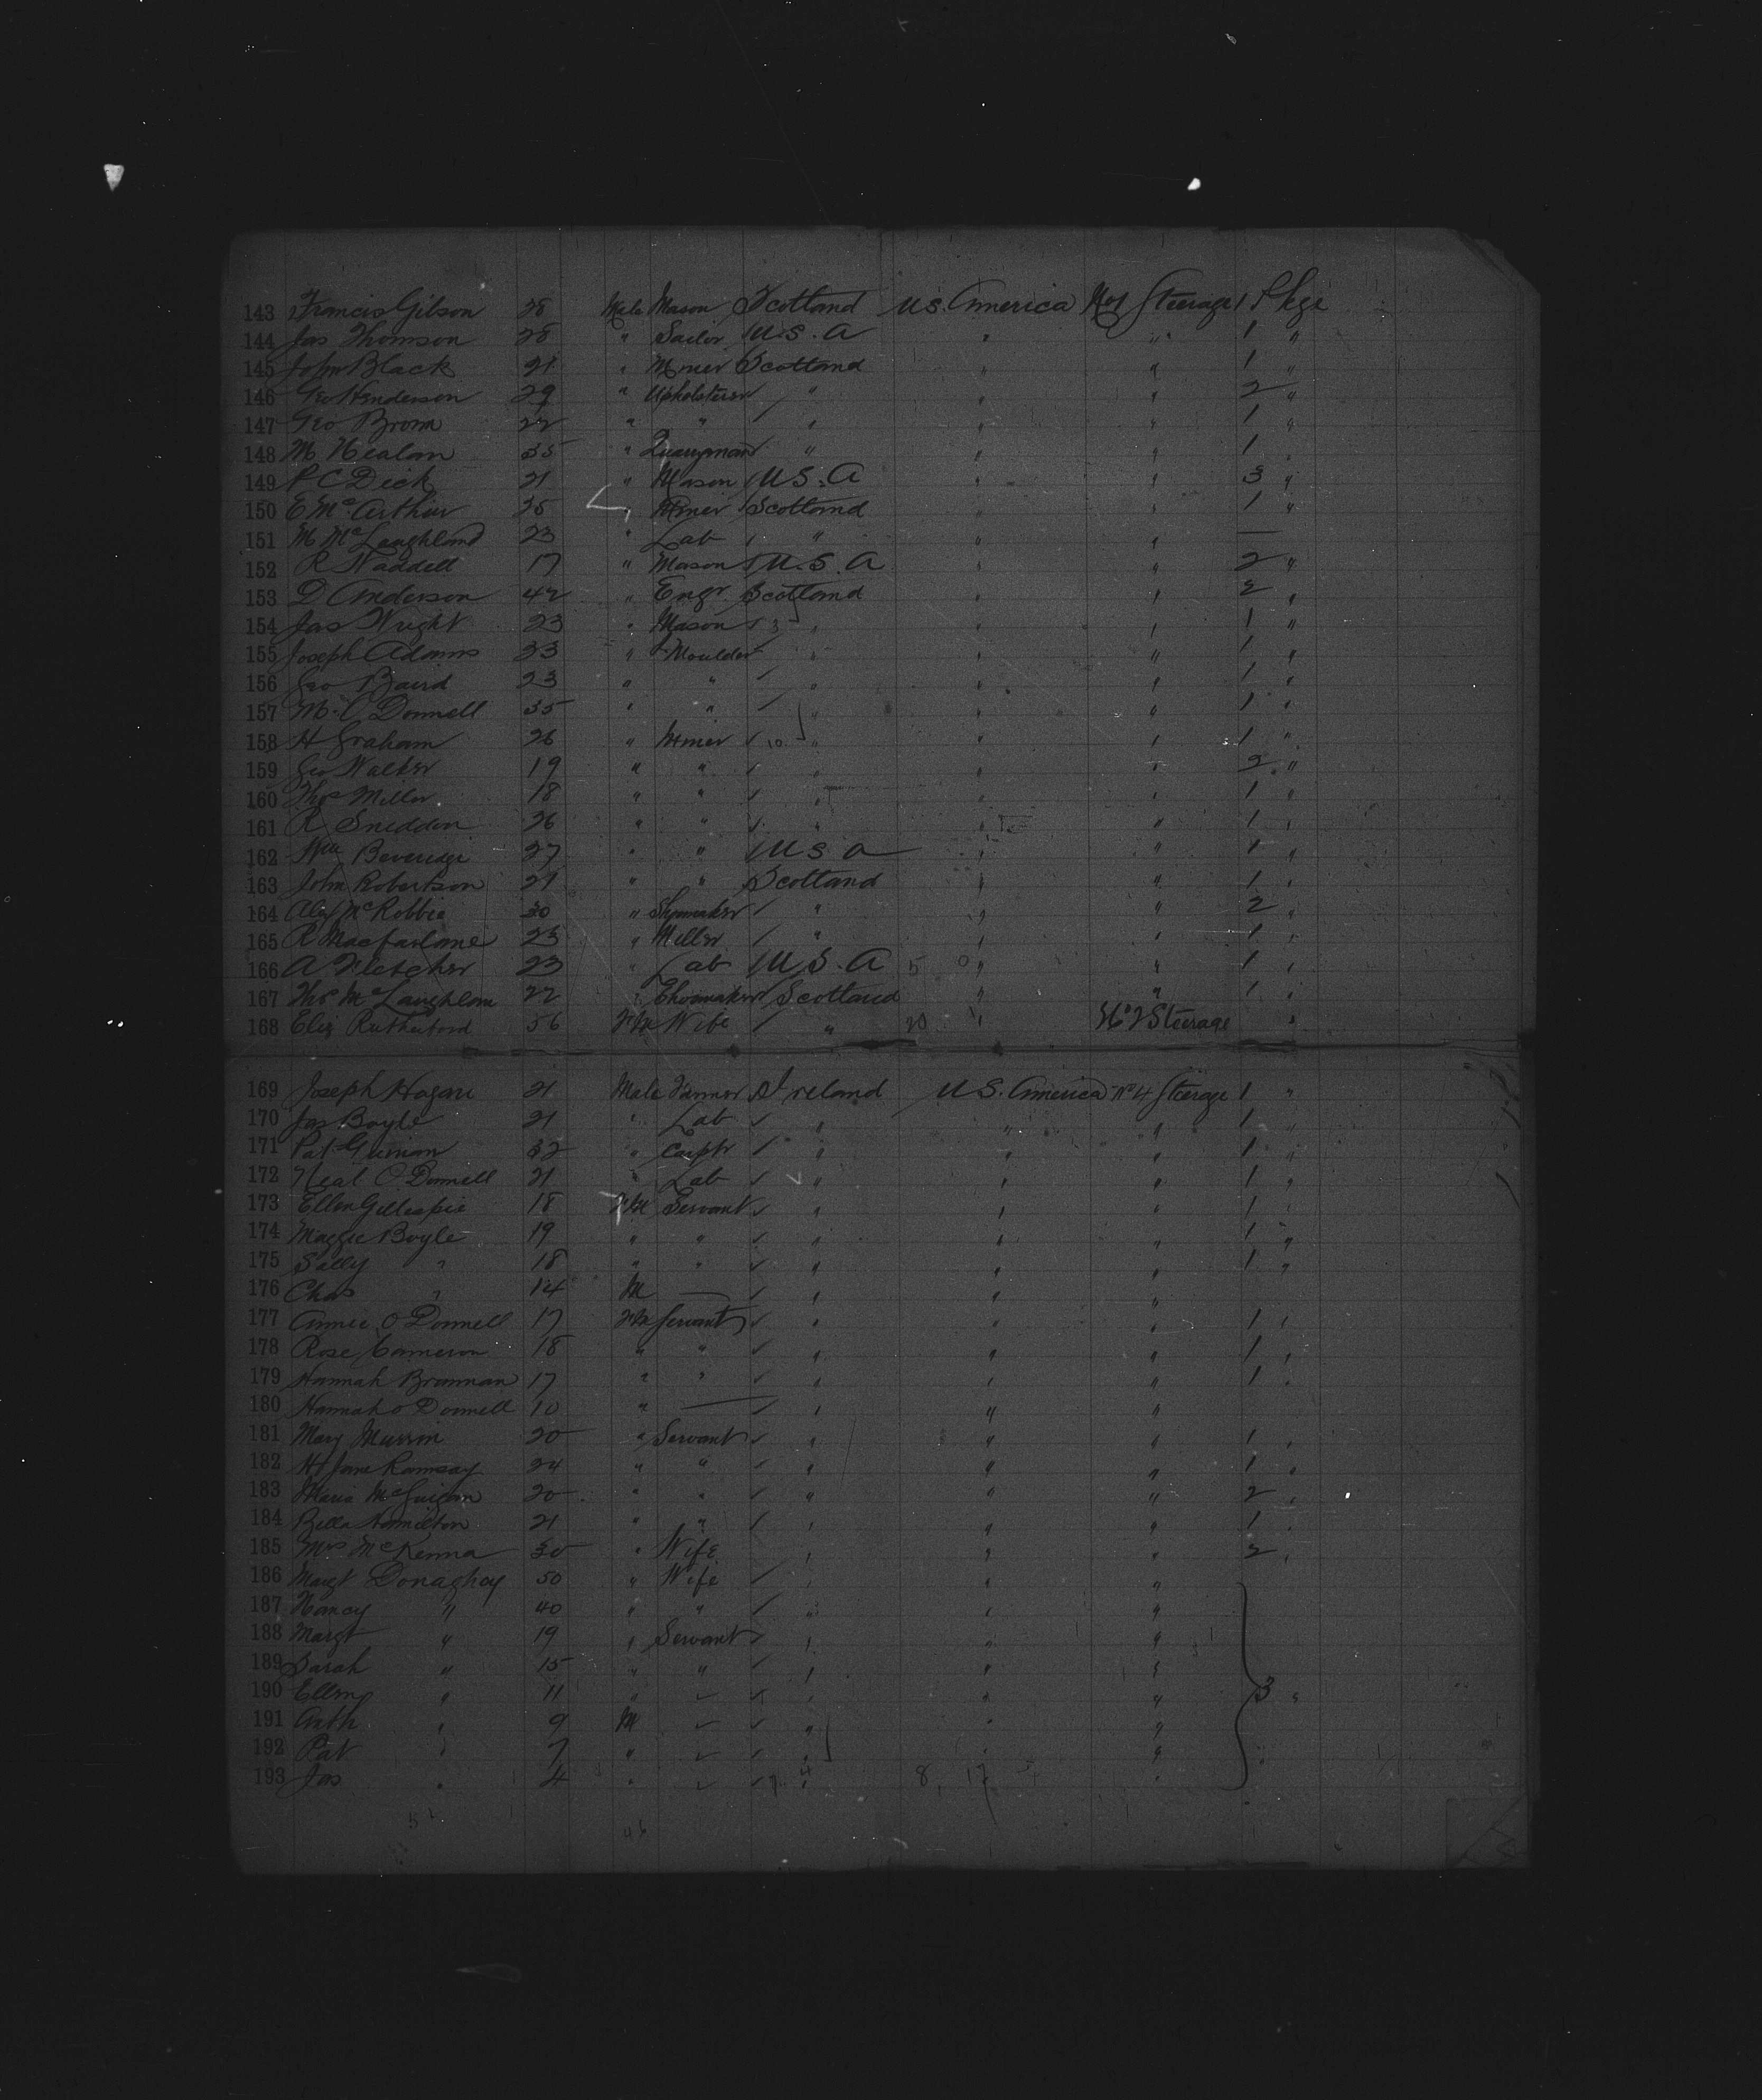 143 Francis Gibson 28 Male Mason Scotland U.S. America No 1 Steerage 1 Pkge
144 Jas Thomson 28 " Sailor U.S.A " " 1 "
145 John Black 21 " Miner Scotland " " 1 "
146 Geo Henderson 29 " Upholsterer " " " 2 "
147 Geo Brown 22 " " " " " 1 "
148 M Nealon 35 " Quarryman " " " 1 "
149 P C Dick 21 " Mason U.S.A " " 3 "
150 E McArthur 25 " Miner Scotland " " 1 "
151 M McLaughland 23 " Lab " " " —
152 R Waddell 17 " Mason U.S.A " " 2 "
153 D Anderson 42 " Engr Scotland " " 2 "
154 Jas Wright 23 " Mason " " " 1 "
155 Joseph Adams 23 " Moulder " " " 1 "
156 Geo Baird 23 " " " " " 1 "
157 M. O Donnell 35 " " " " " 1 "
158 H Graham 26 " Miner " " " 1 "
159 Geo Walker 19 " " " " " 2 "
160 Thos Miller 18 " " " " " 1 "
161 R Sneddon 26 " " " " " 1 "
162 Wm Beveridge 27 " " U S A " " 1 "
163 John Robertson 21 " " Scotland " " 1 "
164 Alex McRobbie 30 " Shoemaker " " " 2 "
165 R Macfarlane 23 " Miller " " " 1 "
166 A Fletcher 23 " Lab U.S.A " " 1 "
167 Thos McLaughlan 22 " Shoemaker Scotland " " 1 "
168 Eliz Rutherford 56 Wife " 20 " Steerage "
169 Joseph Hogan 21 Male Farmer Ireland U.S. America No 4 Steerage 1 "
170 Jas Boyle 21 " Lab " " " 1 "
171 Pat 32 " Carptr " " " 1 "
172 Neal O Donnell 21 " Lab " " " 1 "
173 Ellen Gillespie 18 Servant " " " 1 "
174 Maggie Boyle 19 " " " " " 1 "
175 Sally " 18 " " " " " 1 "
176 Chas " 14 M — " " "
177 Annie O Donnell 17 Servant " " " 1 "
178 Rose Cameron 18 " " " " " 1 "
179 Hannah Brannan 17 " " " " " 1 "
180 Hannah O Donnell 10 " — " " "
181 Mary Murrin 20 " Servant " " " 1 "
182 Jane Ramsay 24 " " " " " 1 "
183 Maria McGuigan 20 " " " " " 2 "
184 Bella Hamilton 21 " " " " " 1 "
185 Mrs McKenna 30 " Wife " " " 2 "
186 Margt Donaghey 50 " Wife " " "
187 Nancy " 40 " " " " "
188 Margt " 19 " Servant " " "
189 Sarah " 15 " " " " "
190 Ellen " 11 " " " " 3 "
191 Arth " 9 M " " "
192 Pat " 7 " " " "
193 Jas " 4 " " " "